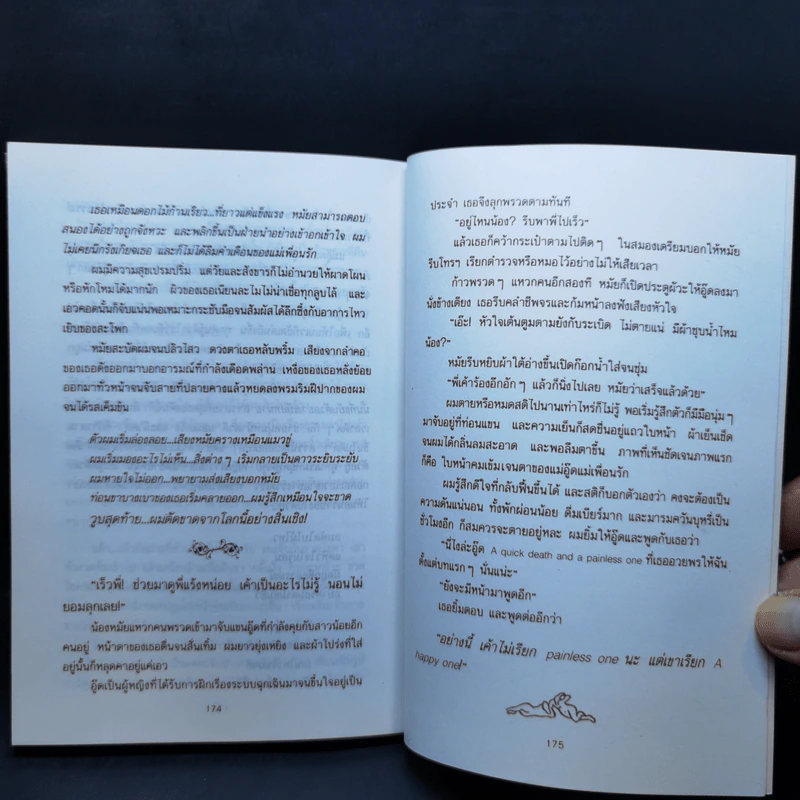 เธอเหมือนดอกไม้ก้านเรียว...ที่ยาวแต่แข็งแรง หมัยสามารถตอบ
สนองได้อย่างถูกจังหวะ และพลิกขึ้นเป็นฝ่ายนำอย่างเข้าอกเข้าใจ ผม
ไม่เคยนึกรังเกียจเธอ และก็ไม่ได้ลืมคำเตือนของแม่เพื่อนรัก
ผมมีความสุขเปรมปริ่ม แต่วัยและสังขารก็ไม่อำนวยให้ผาดโผน
หรือหักโหมได้มากนัก ผิวของเธอเนียนละไมไม่น่าเชื่อทุกลูบไล้ และ
เอวคอดนั้นก็จับแน่นพอเหมาะกระชับมือจนสัมผัสได้ลึกซึ้งกับอาการไหว
เยิบของสะโพก
หมัยสะบัดผมจนปลิวไสว ดวงตาเธอหลับพริ้ม เสียงจากลำคอ
ของเธอดังออกมาบอกอารมณ์ที่กำลังเดือดพล่าน เหงื่อของเธอหลั่งย้อย
ออกมาทั่วหน้าจนจับสายที่ปลายคางแล้วหยดลงพรมริมฝีปากของผม
จนได้รสเค็มข้น
ตัวผมเริ่มล่องลอย...เสียงหมัยครางเหมือนแมวขู่
ผมเริ่มมองอะไรไม่เห็น...สิ่งต่างๆ เริ่มกลายเป็นดาวระยิบระยับ
ผมหายใจไม่ออก...พยายามส่งเสียงบอกหมัย
ท่อนขาบางเบาของเธอเริ่มคลายออก...ผมรู้สึกเหมือนใจจะขาด
วูบสุดท้าย...ผมตัดขาดจากโลกนี้อย่างสิ้นเชิง!
"เร็วพี่! ช่วยมาดูพี่แร้งหน่อย เค้าเป็นอะไรไม่รู้ นอนไม่
ยอมลุกเลย!"
น้องหมัยแหวกคนพรวดเข้ามาจับแขนอู๊ดที่กำลังคุยกับสาวน้อยอีก
คนอยู่ หน้าตาของเธอตื่นจนสั่นเทิ้ม ผมยาวยุ่งเหยิง และผ้าโปร่งที่ใส่
อยู่นั้นก็หลุดคาอยู่แค่เอว
อู๊ดเป็นผู้หญิงที่ได้รับการฝึกเรื่องระบบฉุกเฉินมาจนขึ้นใจอยู่เป็น
174
ประจำ เธอจึงลุกพรวดตามทันที
"อยู่ไหนน้อง? รีบพาพี่ไปเร็ว"
แล้วเธอก็คว้ากระเป๋าตามไปติดๆ ในสมองเตรียมบอกให้หมัย
รีบโทรๆ เรียกตำรวจหรือหมอไว้อย่างไม่ให้เสียเวลา
ก้าวพรวดๆ แหวกคนอีกสองที หมัยก็เปิดประตูผัวะให้อู๊ดลงมา
นั่งข้างเตียง เธอรีบคลำชีพจรและก้มหน้าลงฟังเสียงหัวใจ
"เอ๊ะ! หัวใจเต้นตูมตามยังกับระเบิด ไม่ตายแน่ มีผ้าชุบน้ำไหม
น้อง?"
หมัยรีบหยิบผ้าใต้อ่างขึ้นเปิดก๊อกน้ำใส่จนชุ่ม
"พี่เค้าร้องอึกอักๆ แล้วก็นิ่งไปเลย หมัยว่าเสร็จแล้วด้วย"
ผมตายหรือหมดสติไปนานเท่าไหร่ก็ไม่รู้ พอเริ่มรู้สึกตัวก็มีมือนุ่มๆ
มาจับอยู่ที่ท่อนแขน และความเย็นก็สดชื่นอยู่แถวใบหน้า ผ้าเย็นเช็ด
จนผมได้กลิ่นลมสะอาด และพอลืมตาขึ้น ภาพที่เห็นชัดเจนภาพแรก
ก็คือ ใบหน้าคมเข้มเจนตาของแม่อู๊ดแม่เพื่อนรัก
ผมรู้สึกดีใจที่กลับฟื้นขึ้นได้ และสติก็บอกตัวเองว่า คงจะต้องเป็น
ความดันแน่นอน ทั้งพักผ่อนน้อย ดื่มเบียร์มาก และมารมควันบุหรี่เป็น
ชั่วโมงอีก ก็สมควรจะตายอยู่หละ ผมยิ้มให้อู๊ดและพูดกับเธอว่า
"นี่ไงล่ะอู๊ด A quick death and a painless one ที่เธออวยพรให้ฉัน
ตั้งแต่บทแรกๆ นั่นแน่ะ"
"ยังจะมีหน้ามาพูดอีก"
เธอยิ้มตอบ และพูดต่ออีกว่า
"อย่างนี้ เค้าไม่เรียก painless one นะ แต่เขาเรียก A
happy one!"
175